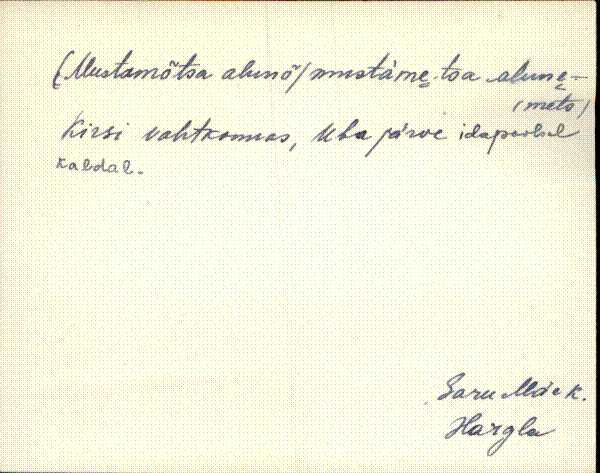 (Mustamõtsa alunõ/mustàmẹ.tsa alunẹ-
(mets)
Kirsi vahtkonnas, Uba järve idapoolsel
kaldal.
Saru Mäe k.
Hargla